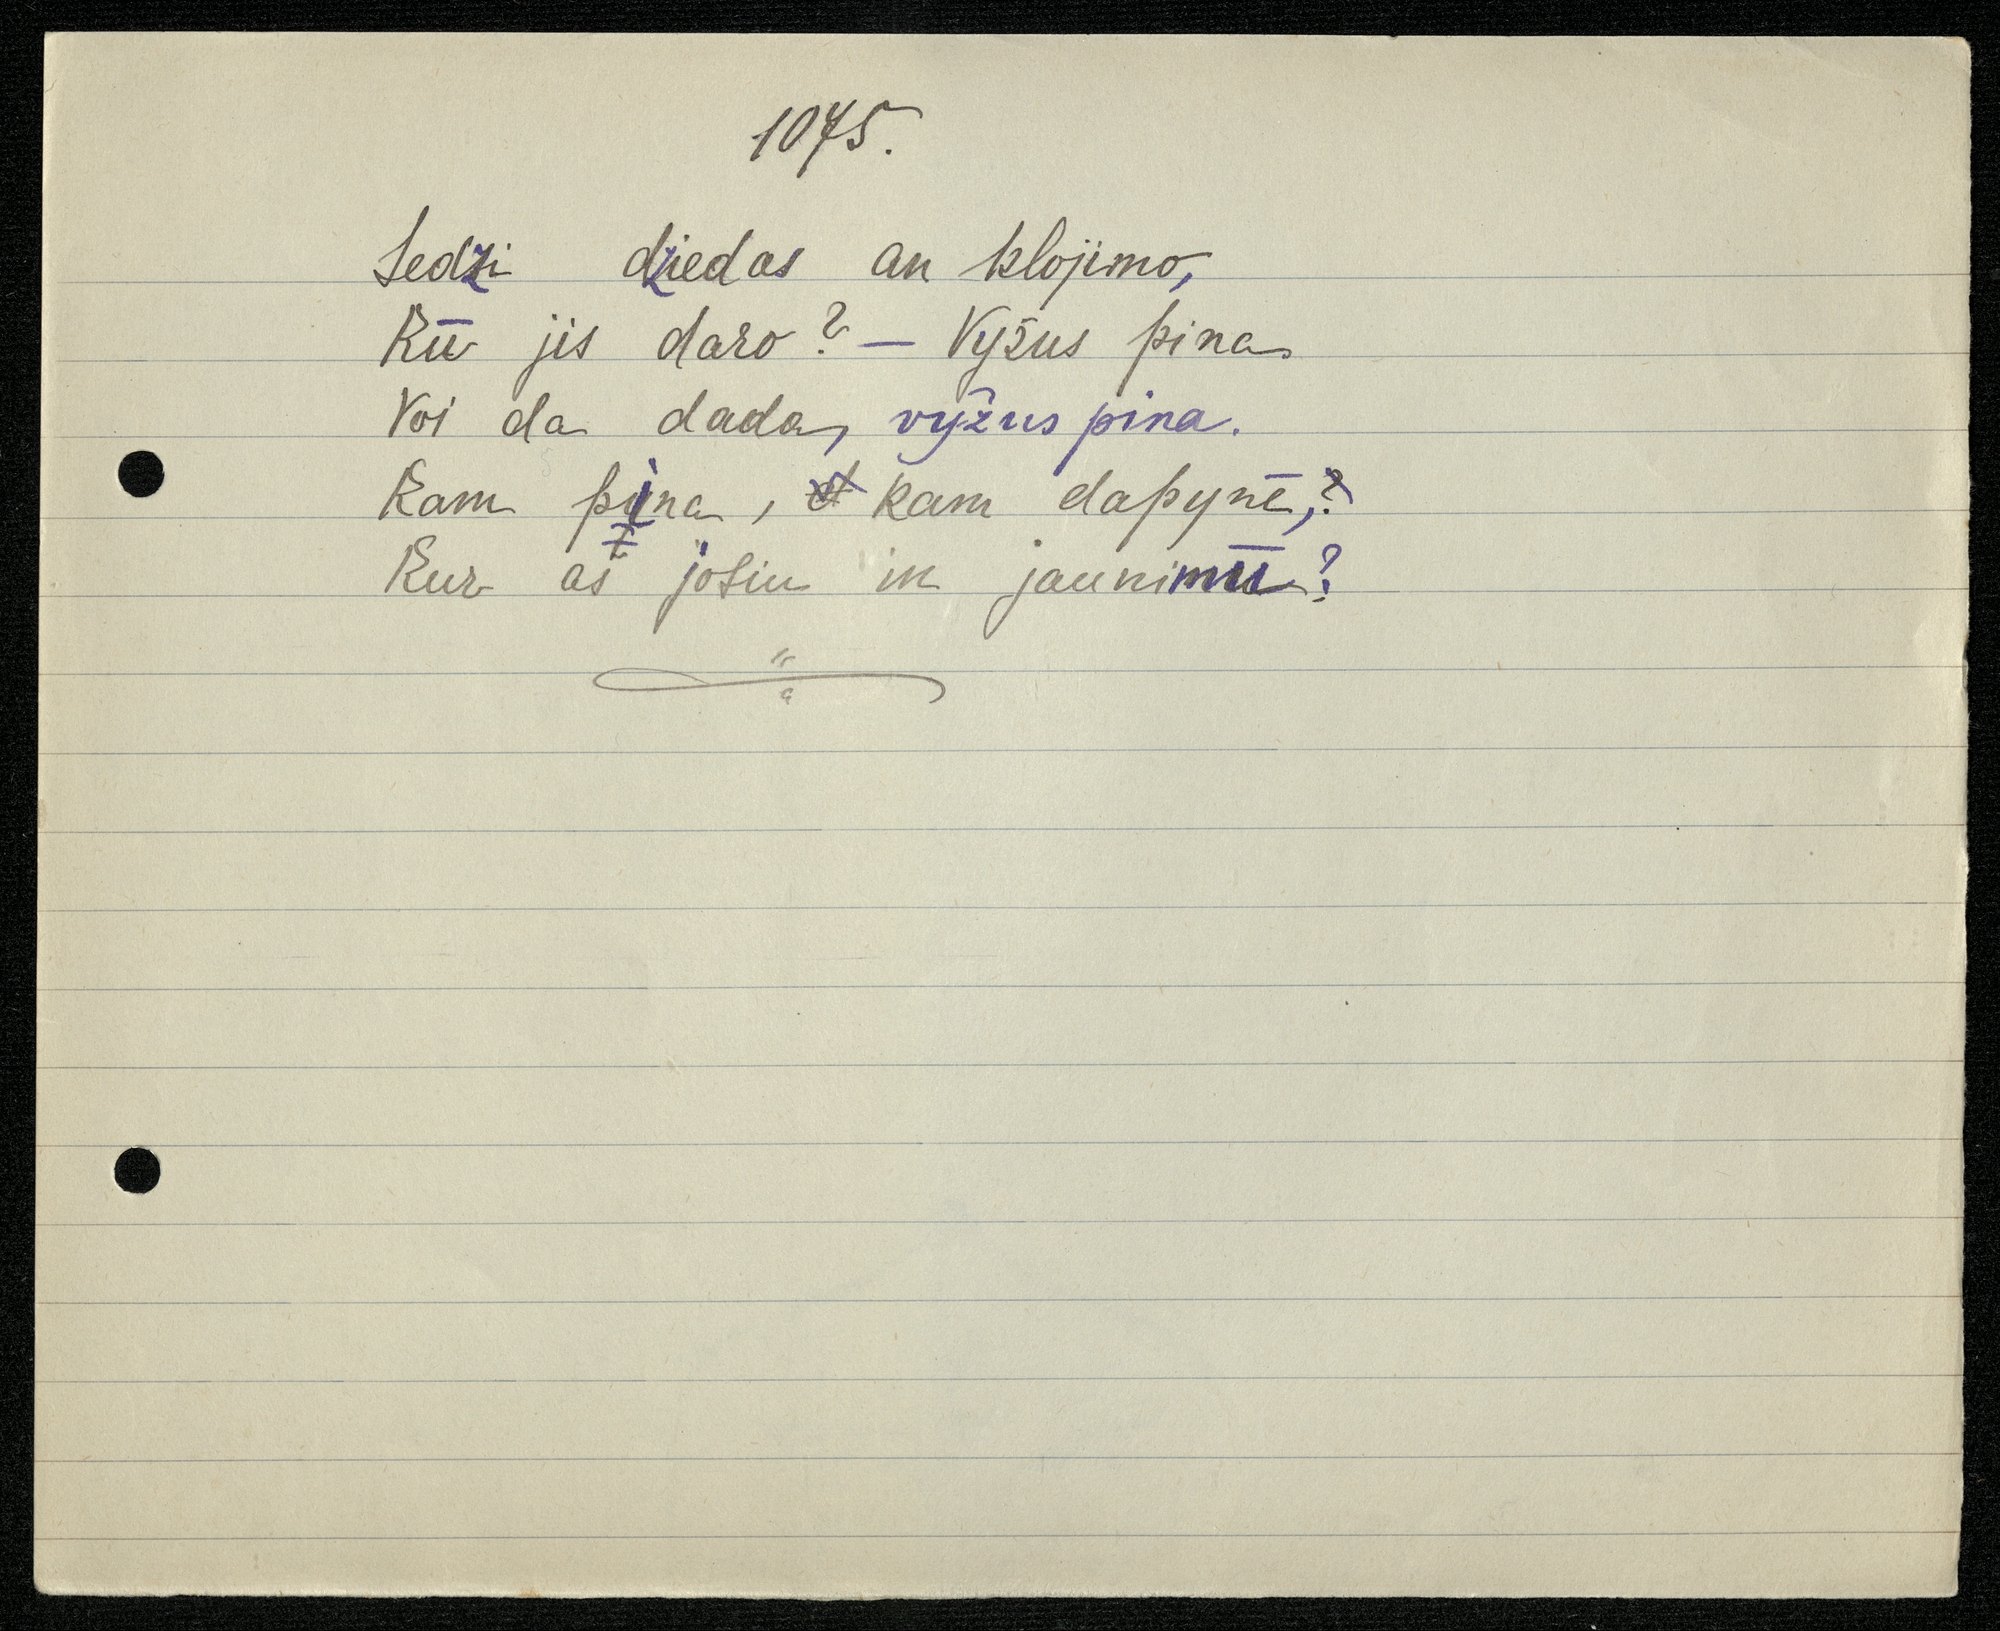 1075.
Sedzi dziedas an klojimo,
Kū jis daro? — Vyžus pina
Voi da dada, vyžus pina.
Kam pina, kam dapynē,
Kur aš josiu in jaunimū?